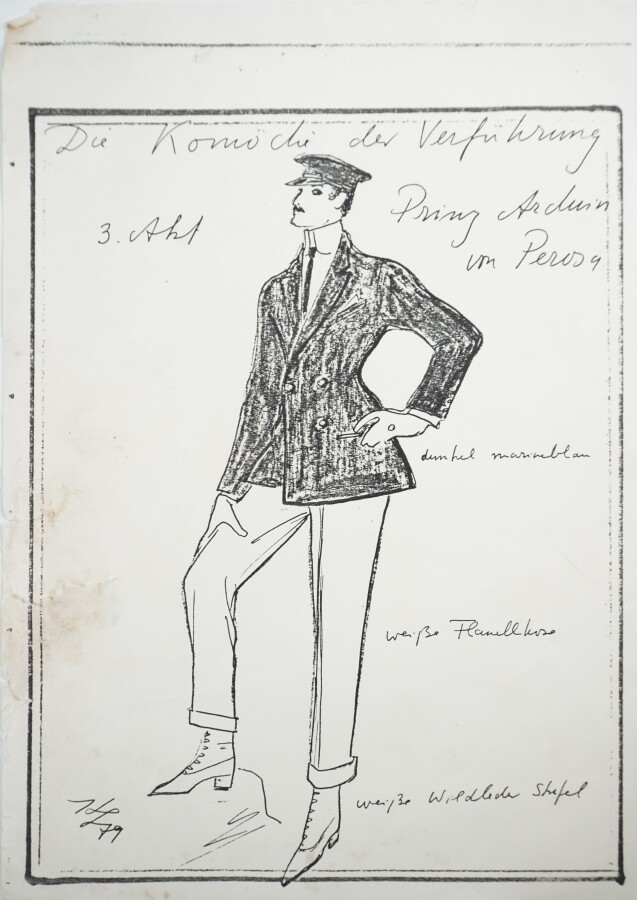 Die Komödie der Verführung
3. Akt
Prinz Arduin
von Perosa
dunkel marineblau
weiße Flanellhose
weiße Wildleder Stiefel
79